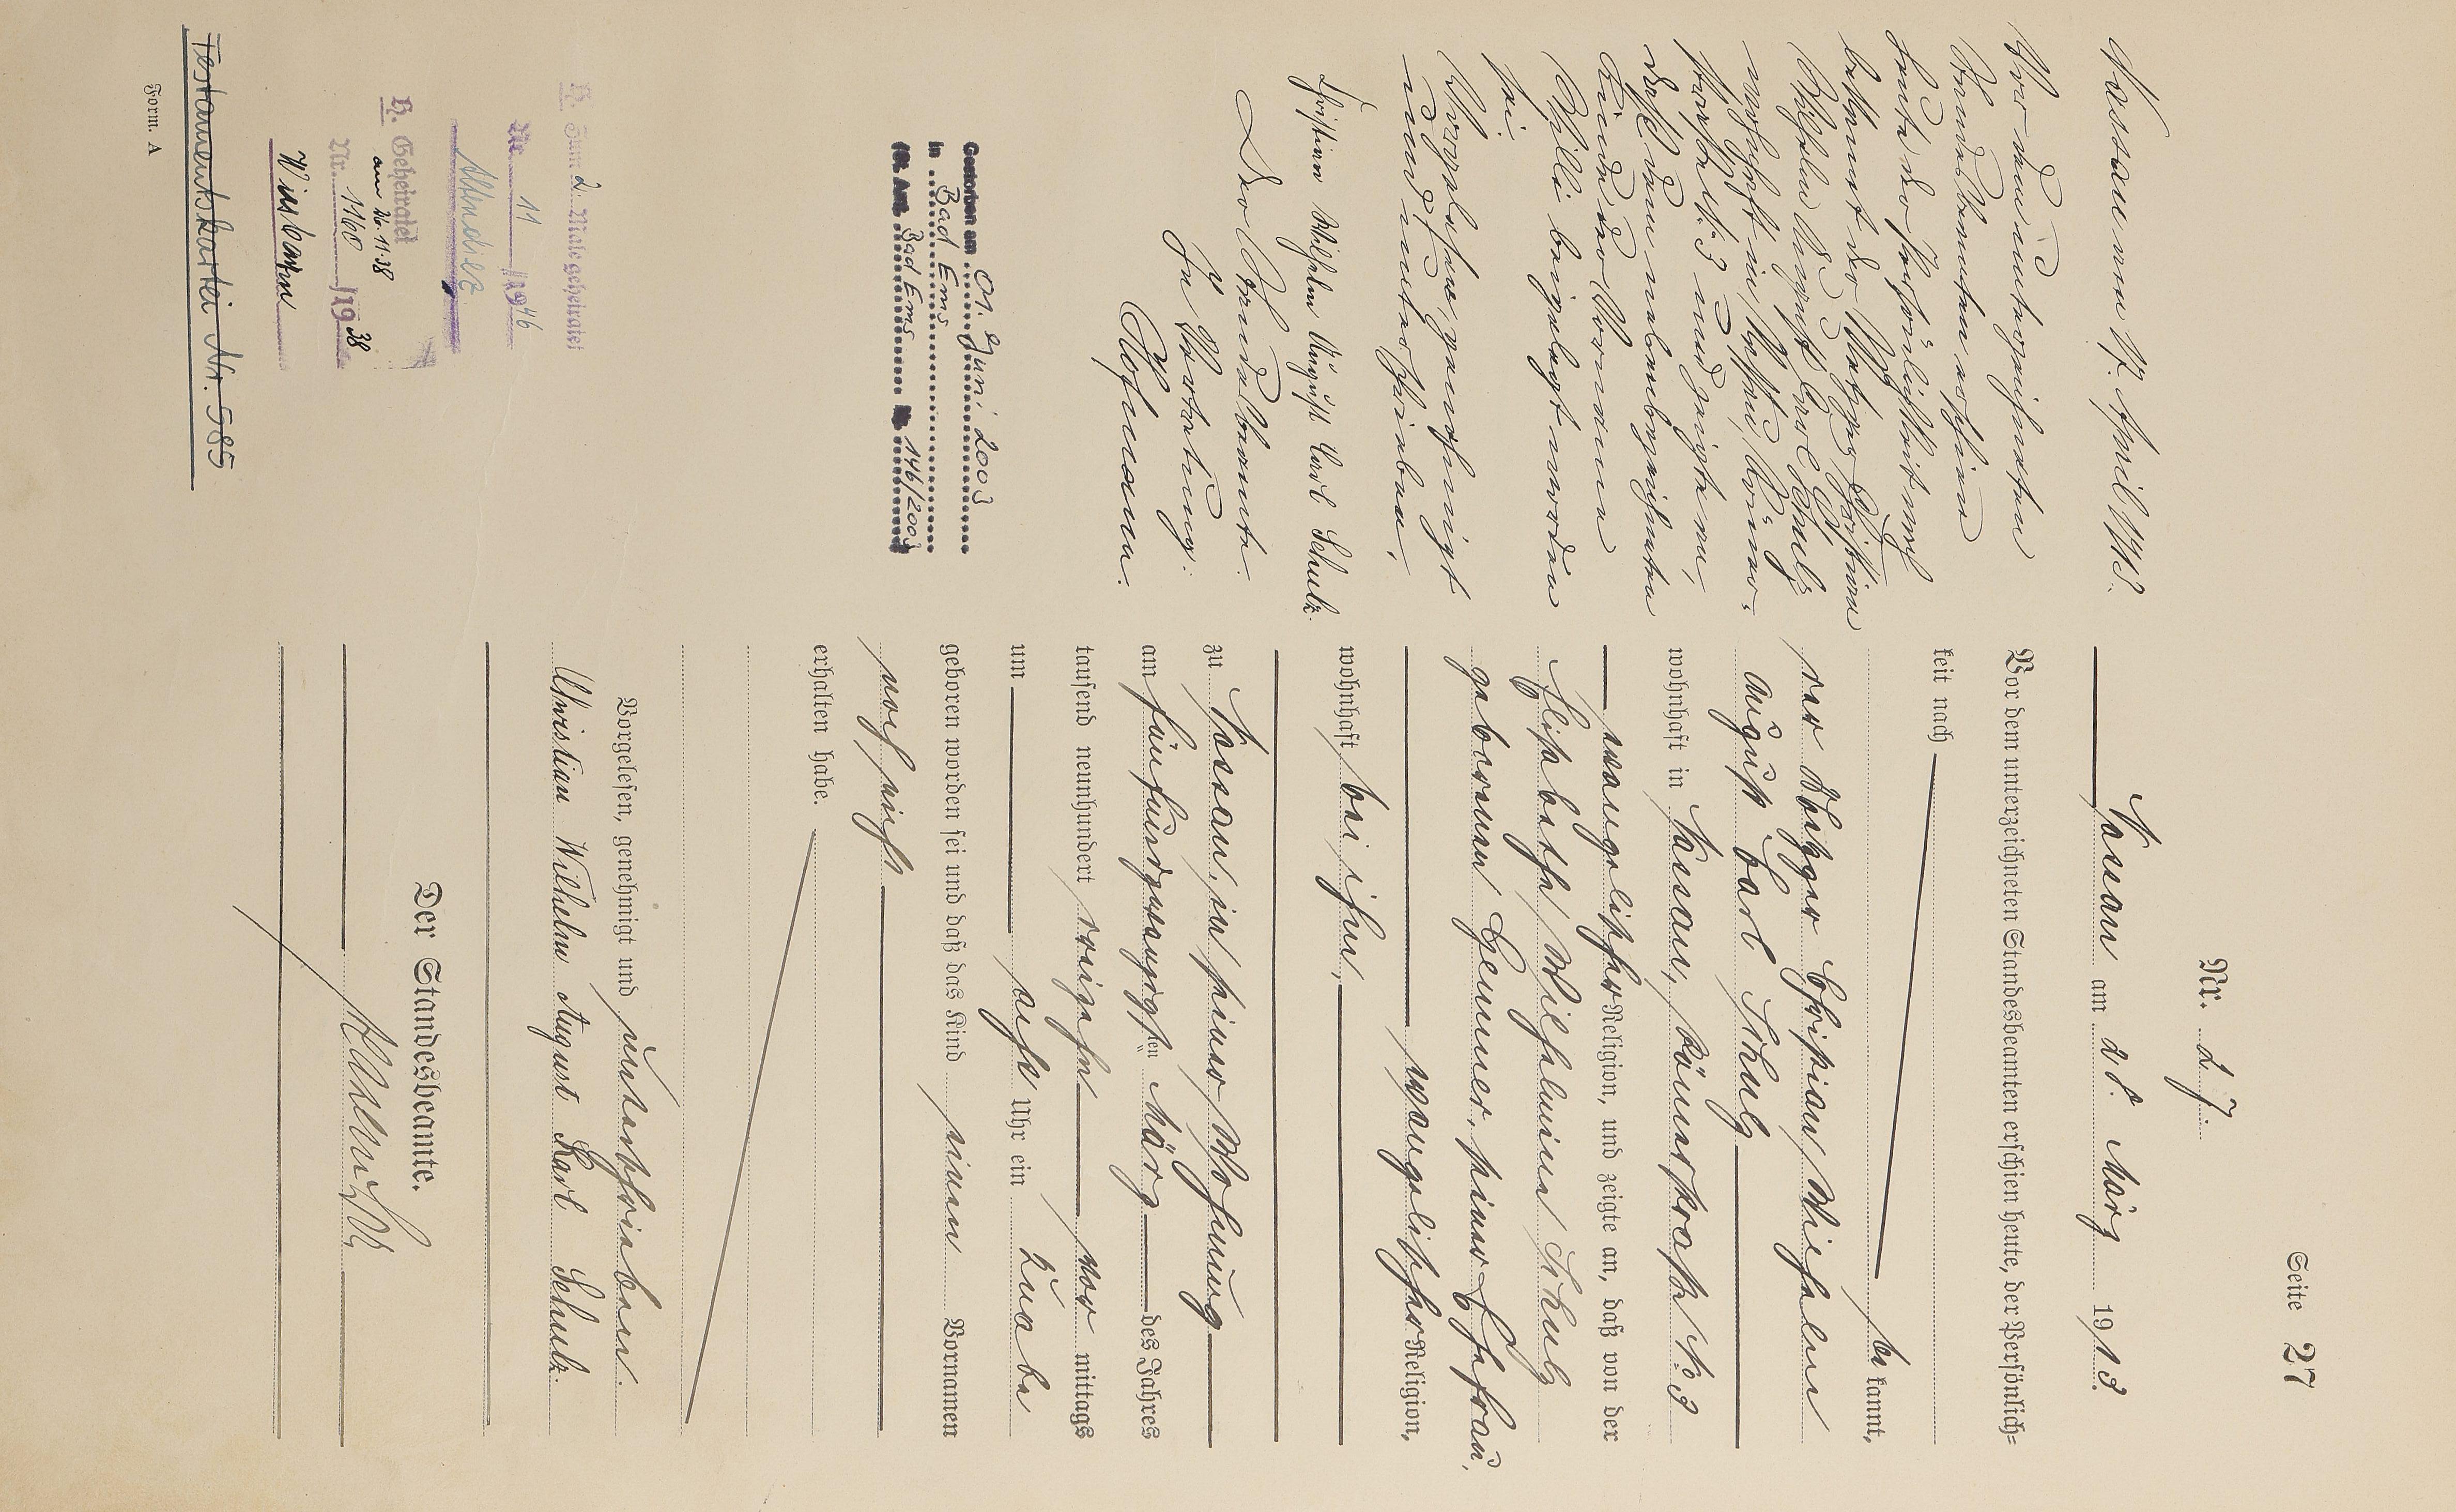 Seite 27
Nr. 27.
Nassau am 28. März 1913.
Vor dem unterzeichneten Standesbeamten erschien heute, der Persönlich-
keit nach
bekannt,
der Metzger Christian Wilhelm
August Carl Schulz
wohnhaft in Nassau, Römerstraße No 3
evangelischer Religion, und zeigte an, daß von der
Elisabethe Wilhelmine Schulz
geborenen Hemmer, seiner Ehefrau,
evangelischer Religion,
wohnhaft bei ihm,
zu Nassau, in seiner Wohnung
am fünfundzwanzigsten März des Jahres
tausend neunhundert dreizehn vor mittags
um acht Uhr ein Knabe
geboren worden sei und daß das Kind einen Vornamen
noch nicht
erhalten habe.
Vorgelesen, genehmigt und unterschrieben.
Christian Wilhelm August Karl Schulz.
Der Standesbeamte.
Nassau am 17. April 1913.
Vor dem unterzeichneten
Standesbeamten erschien
heute der Persönlichkeit nach
bekannt der Metzger Christian
Wilhelm August Carl Schulz
wohnhaft in Nassau, Römer-
straße No 3 und zeigte an,
daß dem nebenbezeichneten
Kinde der Vorname
Willi beigelegt worden
sei.
Vorgelesen, genehmigt
und unterschrieben.
Christian Wilhelm August Carl Schulz.
Der Standesbeamte.
In Vertretung:
Hofmann.
Gestorben am 01. Juni 2003
in Bad Ems
(St. Amt Bad Ems Nr. 146/2003)
H. Zum 2. Male geheiratet
Nr. 11 /1946
Altendiez
H. Geheiratet
am 26.11.38
Nr. 1160 /1938
Wiesbaden
Testamentskartei Nr. 585
Form. A